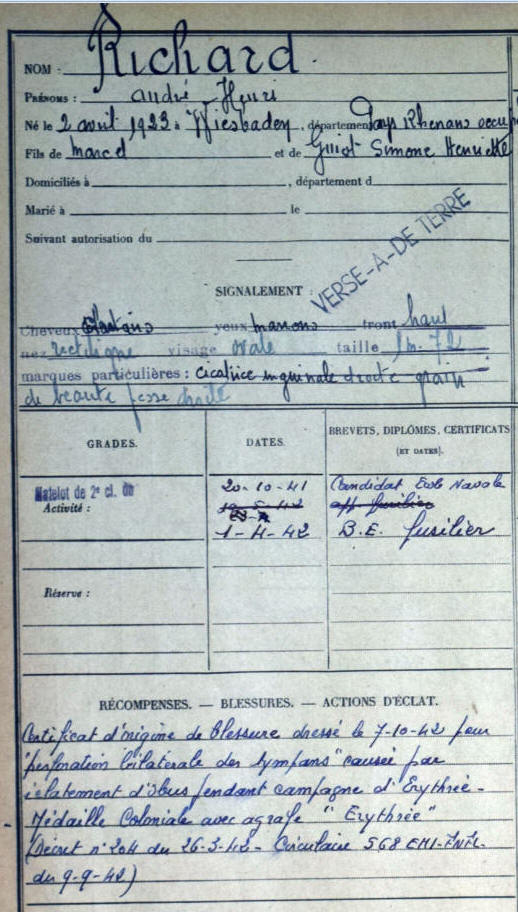 NOM : Richard.
PRÉNOMS : André Henri
Né le 2 avril 1923 à Wiesbaden, département Pays Rhenans occup
Fils de Marcel et de Guiot Simone Henriette
Domiciliés à , département d
Marié à le
Suivant autorisation du
VERSE-A-DE TERRE
SIGNALEMENT :
Cheveux châtains yeux marrons front haut
nez rectiligne visage ovale taille 1m. 72
marques particulières : cicatrice inguinale droite grain
de beauté fesse droite
GRADES. DATES. BREVETS, DIPLÔMES, CERTIFICATS
(ET DATES).
Matelot de 2e cl. 20-10-41 Candidat Ecole Navale
Activité : aff. fusilier
1-4-42 B.E. fusilier
Réserve :
RÉCOMPENSES. — BLESSURES. — ACTIONS D'ÉCLAT.
Certificat d'origine de blessure dressé le 7-10-42 pour
"perforation bilatérale des tympans" causée par
éclatement d'obus pendant campagne d'Erythrée -
- Médaille Coloniale avec agrafe "Erythrée"
(Décret n° 204 du 26-3-42 - Circulaire 568 EM1-FNFL.
du 9-9-42)